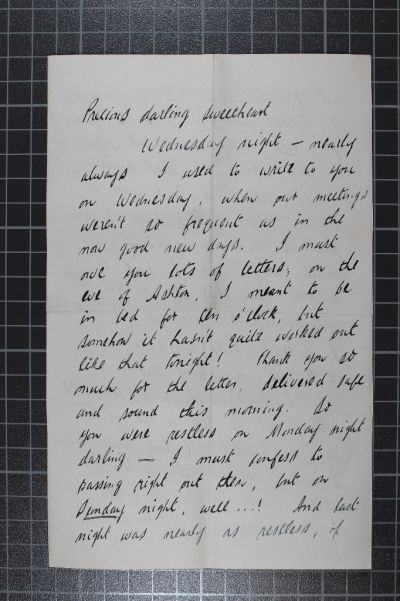 Precious darling Sweetheart
Wednesday night – nearly
always I used to write to you
on Wednesday, when our meetings
weren't so frequent as in the
now good new days. I must
owe you lots of letters; on the
eve of Ashton, I meant to be
in bed for ten o'clock, but
somehow it hasn't quite worked out
like that tonight! Thank you so
much for the letter, delivered safe
and sound this morning. So
you were restless on Monday night
darling – I must confess to
passing right out then, but on
Sunday night, well ...! And last
night was nearly as restless, if